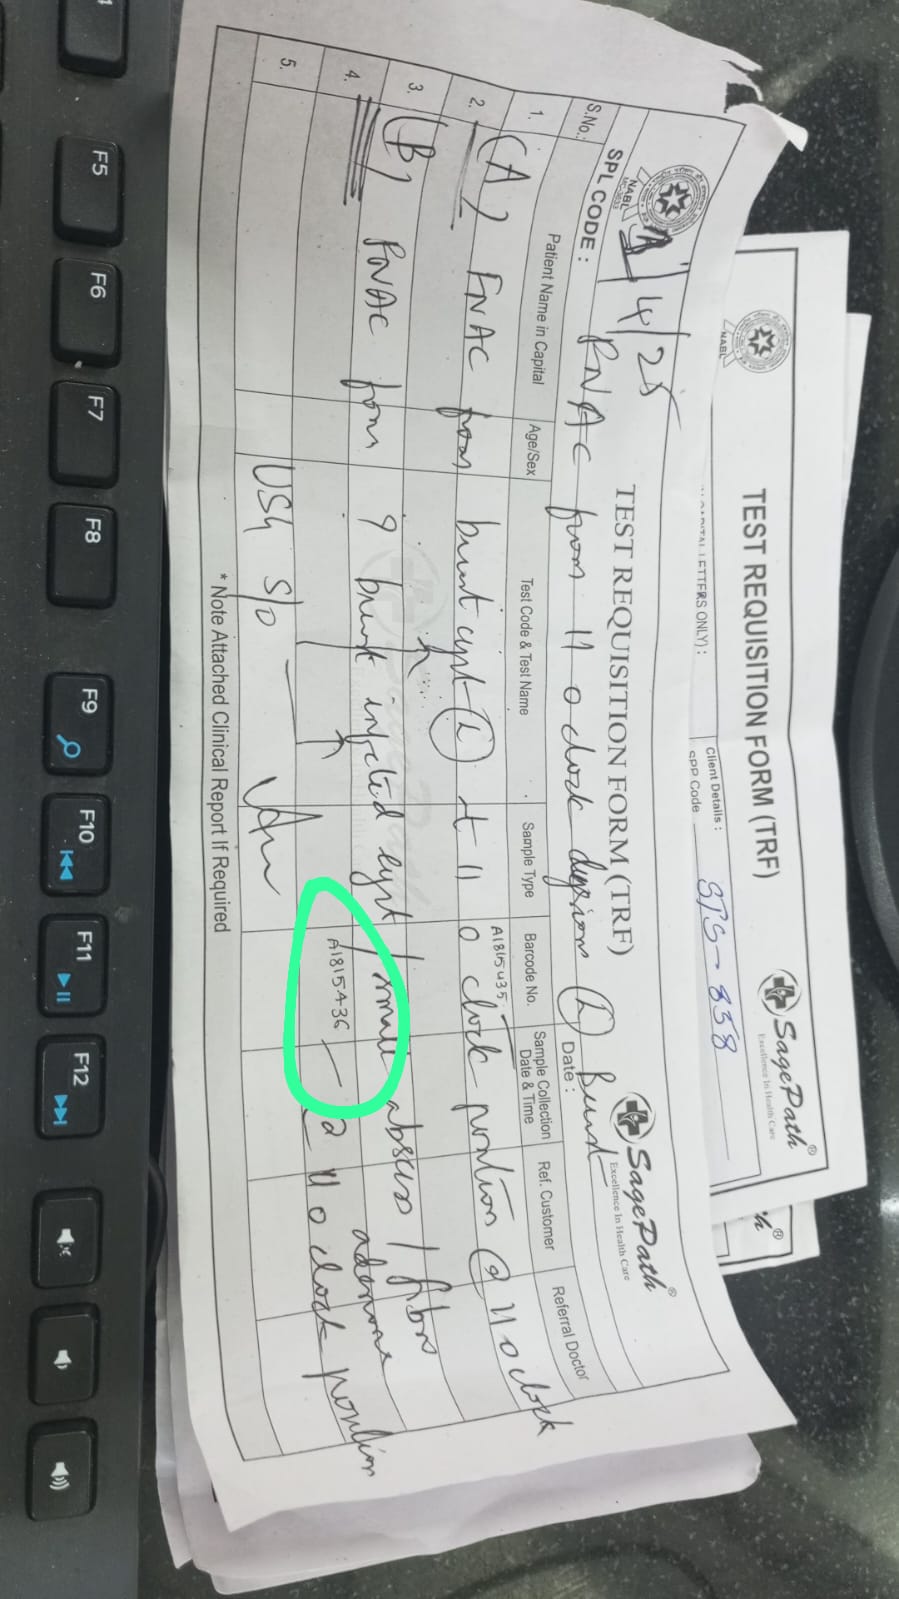 TEST REQUISITION FORM (TRF)
SagePath®
Excellence In Health Care
NABL
Client Details :
SPP Code
SPS-838
LETTERS ONLY) :
TEST REQUISITION FORM (TRF)
SagePath®
Excellence In Health Care
NABL
/4/25
SPL CODE :
Date :
FNAC from 11 o clock (L)
S.No.:
Patient Name in Capital
Age/Sex
Test Code & Test Name
Sample Type
Barcode No.
Sample Collection Date & Time
Ref. Customer
Referral Doctor
1.
A1815435
(A) FNAC from breast cyst (L) at 11 o clock position @ 11 o clock
2.
3.
(B) FNAC from ? breast infected cyst / small abscess / fibro
adenoma
4.
A1815436
@ 11 o clock position
5.
USG S/O
* Note Attached Clinical Report If Required
F5
F6
F7
F8
F9
F10
F11
F12